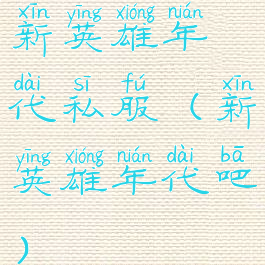 xīn yīng xióng nián
新英雄年
dài sī fú xīn
代私服（新
yīng xióng nián dài bā
英雄年代吧
）